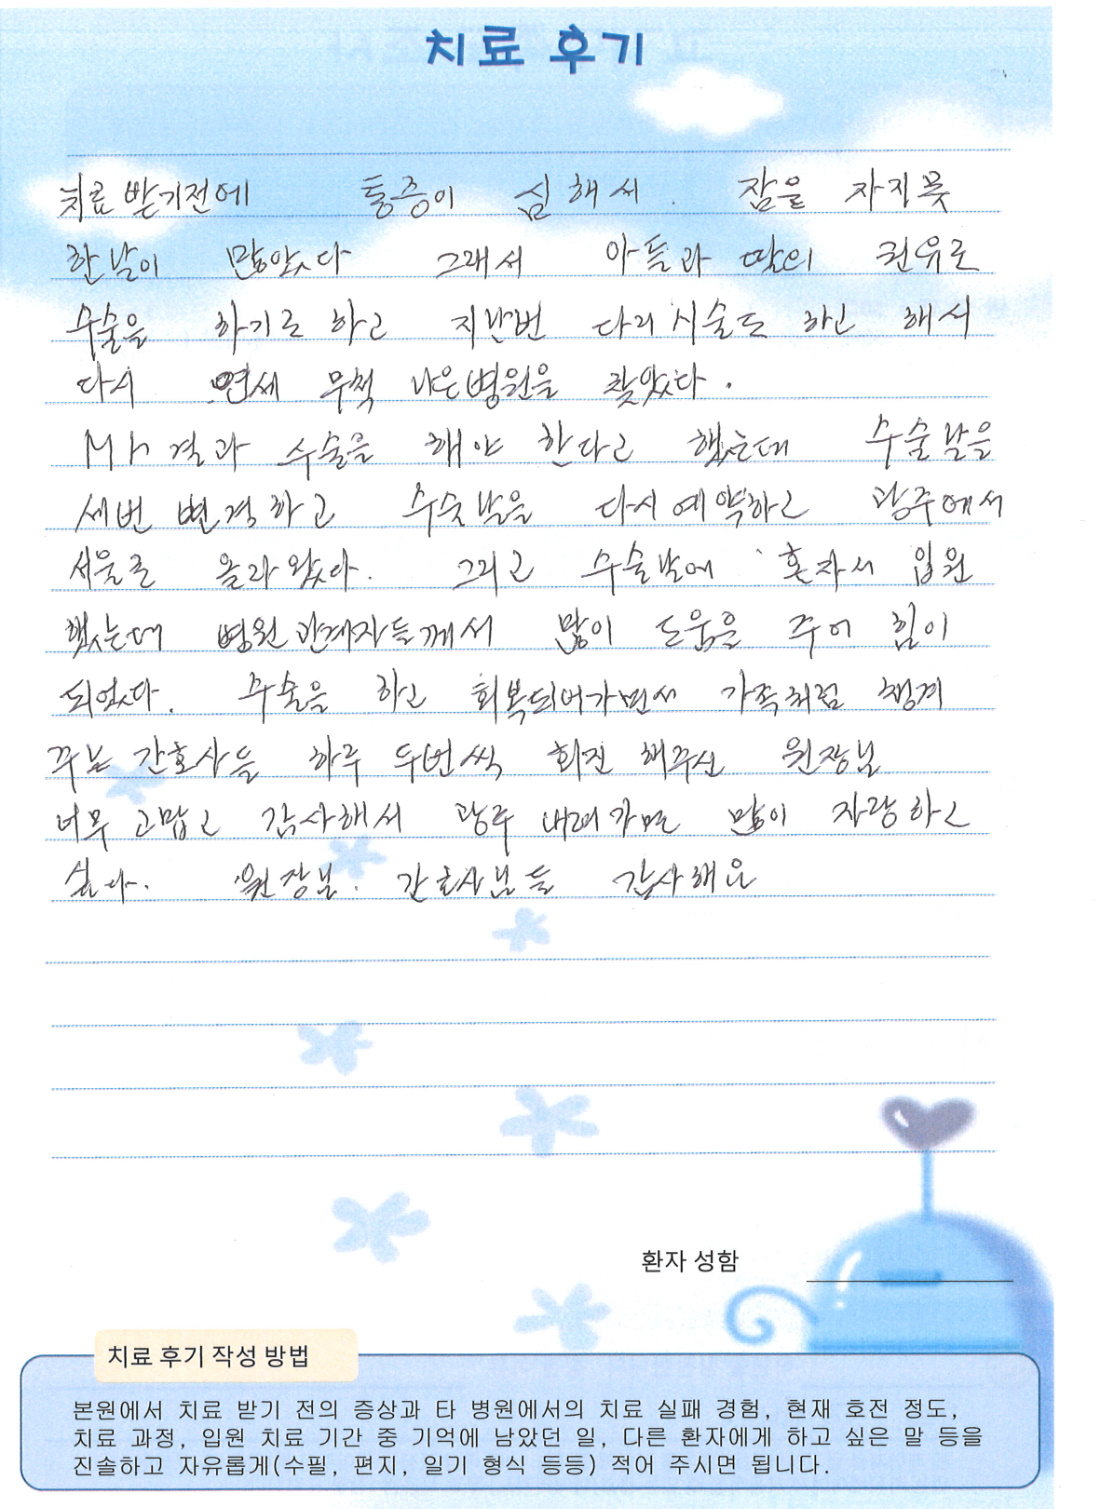 치료 후기
치료 받기전에 통증이 심해서. 잠을 자지못
한날이 많았다 그래서 아들과 딸의 권유로
수술을 하기로 하고 지난번 다리시술도 하고 해서
다시 연세 무척 나은병원을 찾았다.
MR 결과 수술을 해야 한다고 했는데 수술날을
세번 변경하고 수술날을 다시예약하고 광주에서
서울로 올라왔다. 그리고 수술날에 혼자서 입원
했는데 병원관계자들께서 많이 도움을 주어 힘이
되었다. 수술을 하고 회복되어가면서 가족처럼 챙겨
주는 간호사들 하루 두번씩 회진 해주신 원장님
너무 고맙고 감사해서 광주 내려가면 많이 자랑하고
싶다. 원장님. 간호사님들 감사해요
환자 성함
치료 후기 작성 방법
본원에서 치료 받기 전의 증상과 타 병원에서의 치료 실패 경험, 현재 호전 정도,
치료 과정, 입원 치료 기간 중 기억에 남았던 일, 다른 환자에게 하고 싶은 말 등을
진솔하고 자유롭게(수필, 편지, 일기 형식 등등) 적어 주시면 됩니다.